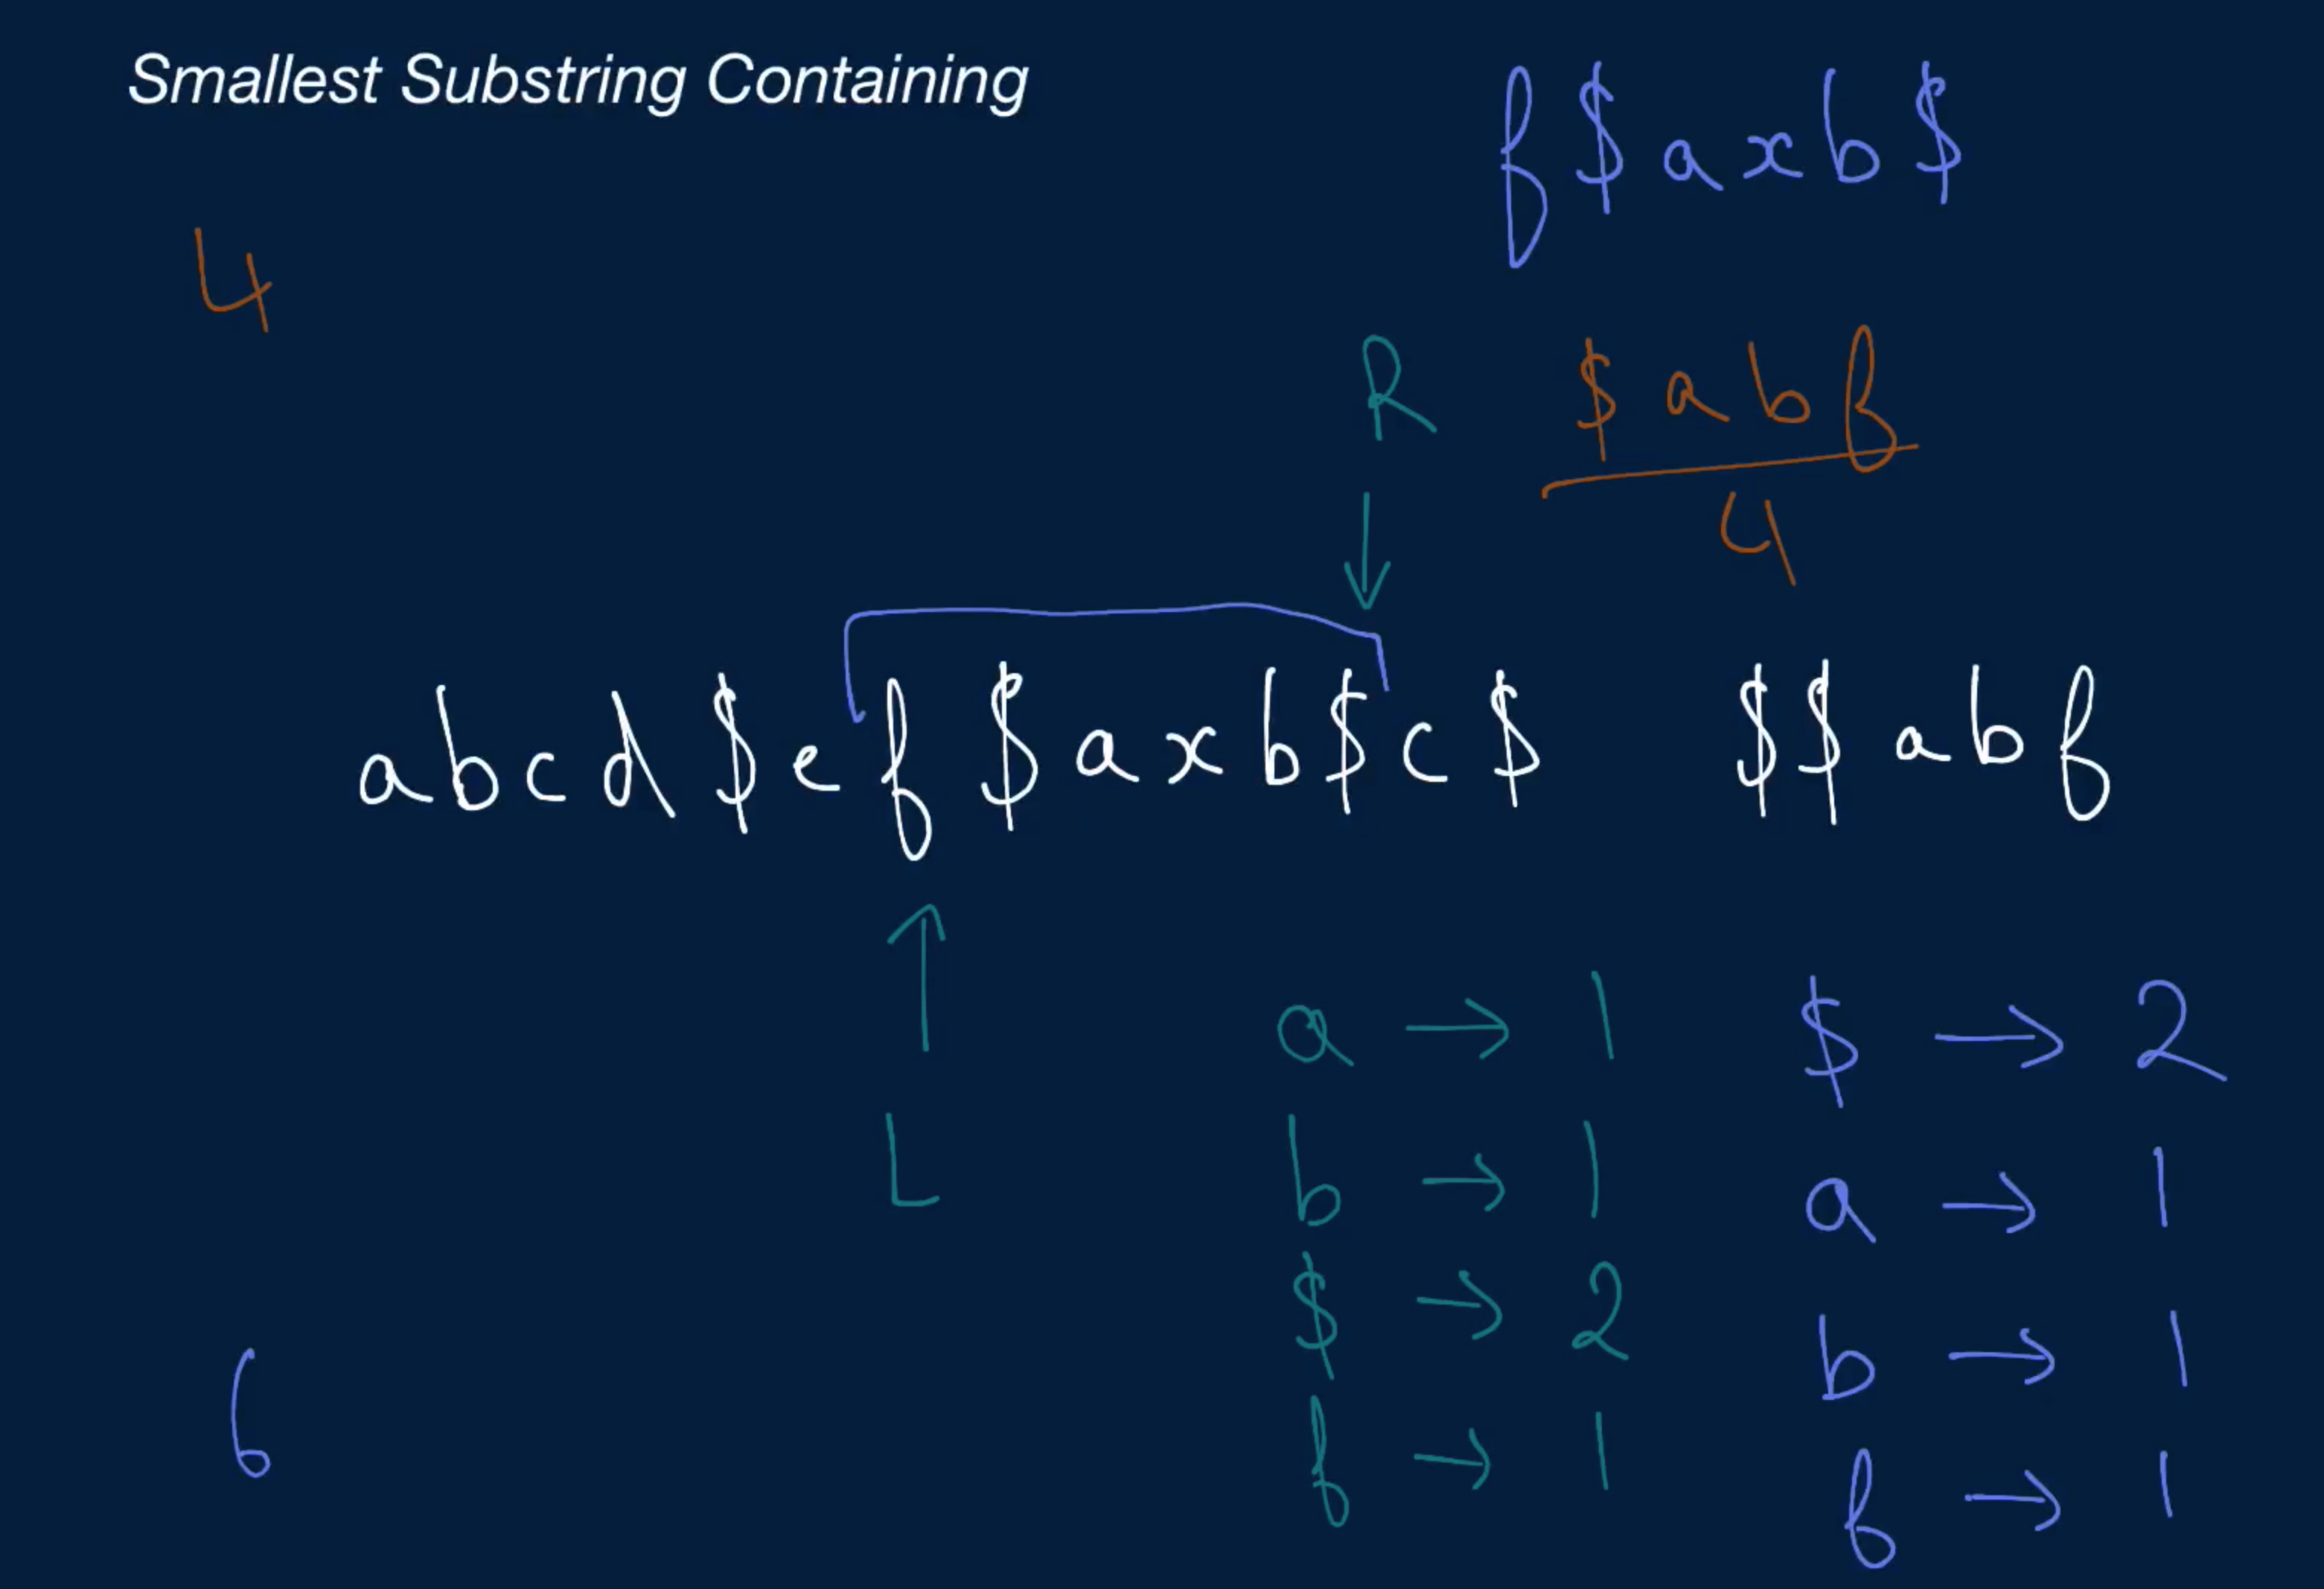 Smallest Substring Containing
f$axb$
4
R
$abf
4
abcd$ef$axb$c$ $$abf
L
a → 1
b → 1
$ → 2
f → 1
$ → 2
a → 1
b → 1
f → 1
6